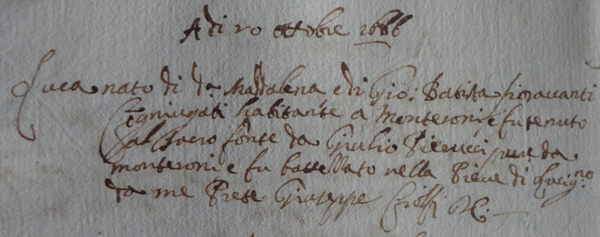 A di 20 ottobre 1686
Luca nato di da Maddalena e di Gio: Batista fioravanti
Cogniugati habitante a Monteroni e fu tenuto
al sacro fonte da Giulio pure da
monteroni e fu battezzato nella Pieve di
da me Prete Giuseppe